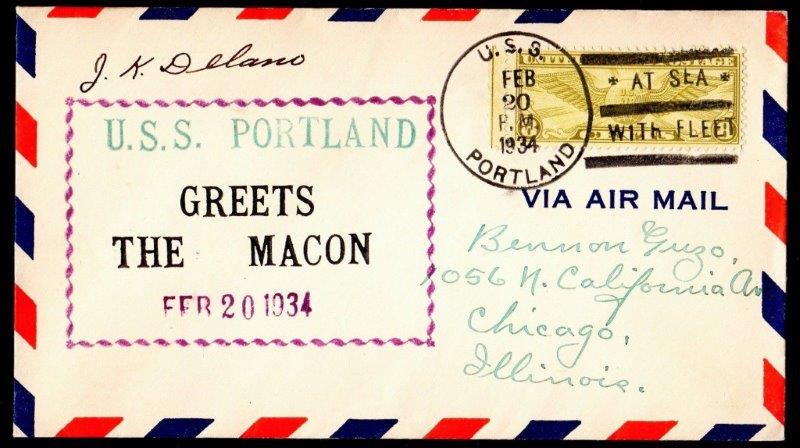 J. K. Delano
U.S.S. PORTLAND
GREETS
THE MACON
FEB 20 1934
U.S.S.
FEB
20
P.M.
1934
PORTLAND
* AT SEA *
WITH FLEET
VIA AIR MAIL
Bennon Guzo,
1056 N. California Av
Chicago,
Illinois.